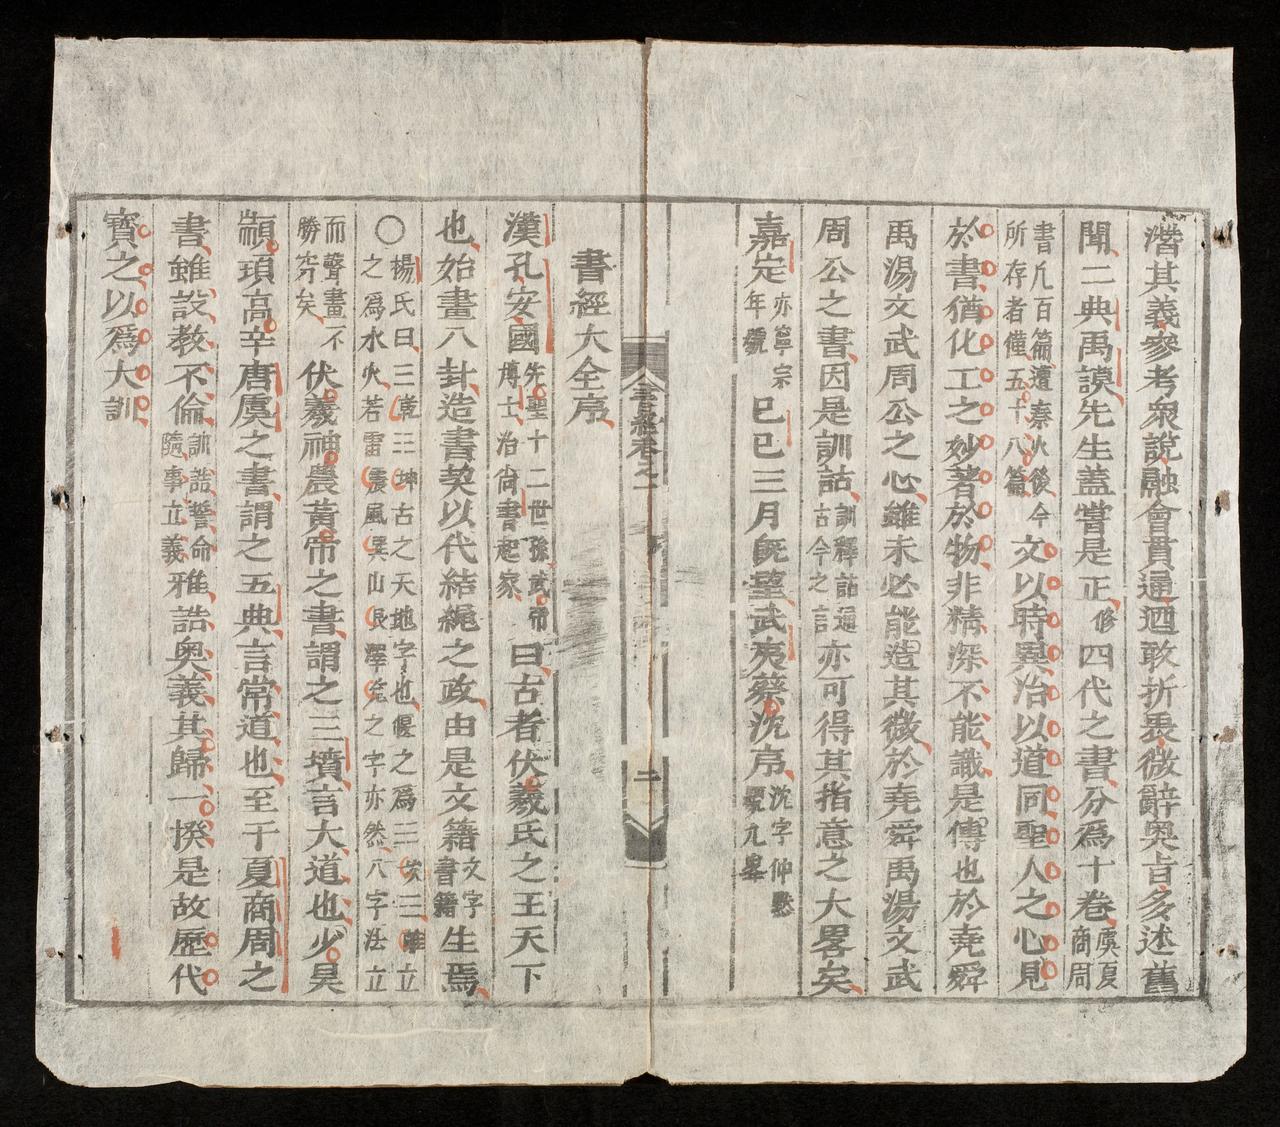 潛其義參考衆說融會貫通迺敢折衷微辭奥旨多述舊
聞二典禹謨先生蓋嘗是正修四代之書分爲十卷虞夏商周
書凡百篇遭秦火後今所存者僅五十八篇文以時異治以道同聖人之心見
於書猶化工之妙著於物非精深不能識是傳也於堯舜
禹湯文武周公之心雖未必能造其微於堯舜禹湯文武
周公之書因是訓詁訓釋詁通古今之言亦可得其指意之大畧矣
嘉定亦寧宗年號己巳三月旣望武夷蔡沈序沈字仲黙號九峯
書經卷之一
二
書經大全序
漢孔安國先聖十二世孫武帝博士治尙書起家曰古者伏羲氏之王天下
也始畫八卦造書契以代結繩之政由是文籍文字書籍生焉
〇楊氏曰三乾三坤古之天地字也偃之爲三坎三離立之爲水火若雷震風巽山艮澤兌之字亦然八字法立
而聲畫不勝窮矣伏羲神農黃帝之書謂之三墳言大道也少昊
顓頊高辛唐虞之書謂之五典言常道也至于夏商周之
書雖設教不倫訓誥誓命隨事立義雅誥奥義其歸一揆是故歷代
寶之以爲大訓